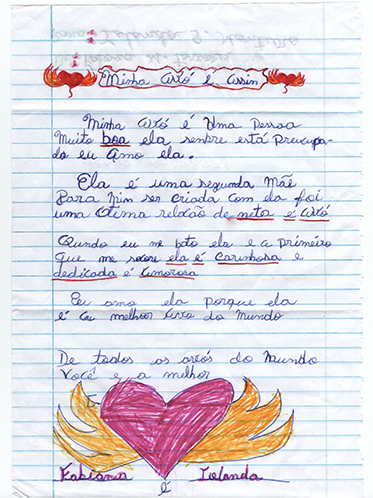 Minha Avó é Assim
Minha Avó é Uma Pessoa
Muito boa ela senpre está preucupa-
do eu Amo ela.
Ela é uma segunda Mãe
Para mim ser criada com ela foi
uma Otima relação de neta é Avó
Qundo eu me bato ela e a primeiro
que me socore ela é Carinhosa e
dedicada é Amorosa
Eu amo ela porque ela
é a melhor Avó do Mundo
De todos os avós do Mundo
Você e a melhor
Fabiana é Iolanda